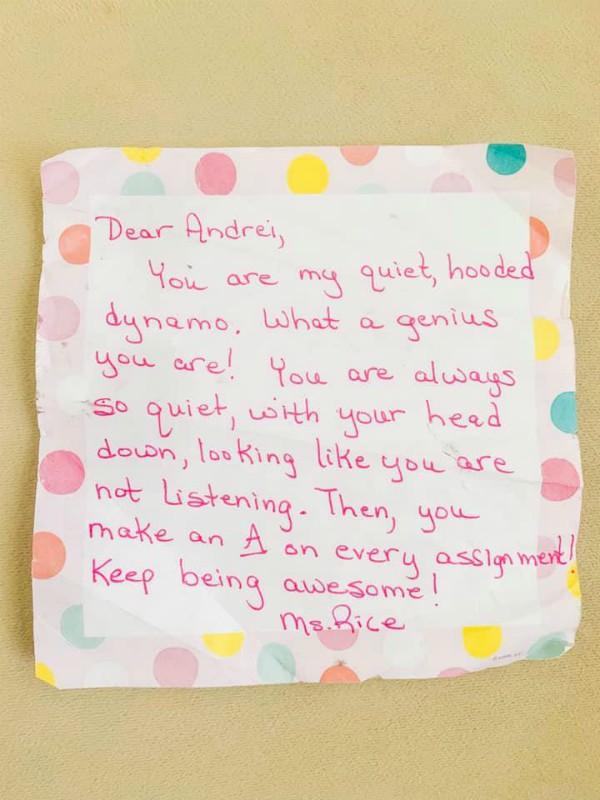 Dear Andrei,
You are my quiet, hooded
dynamo. What a genius
you are! You are always
so quiet, with your head
down, looking like you are
not Listening. Then, you
make an A on every assignment!
Keep being awesome!
Ms. Rice